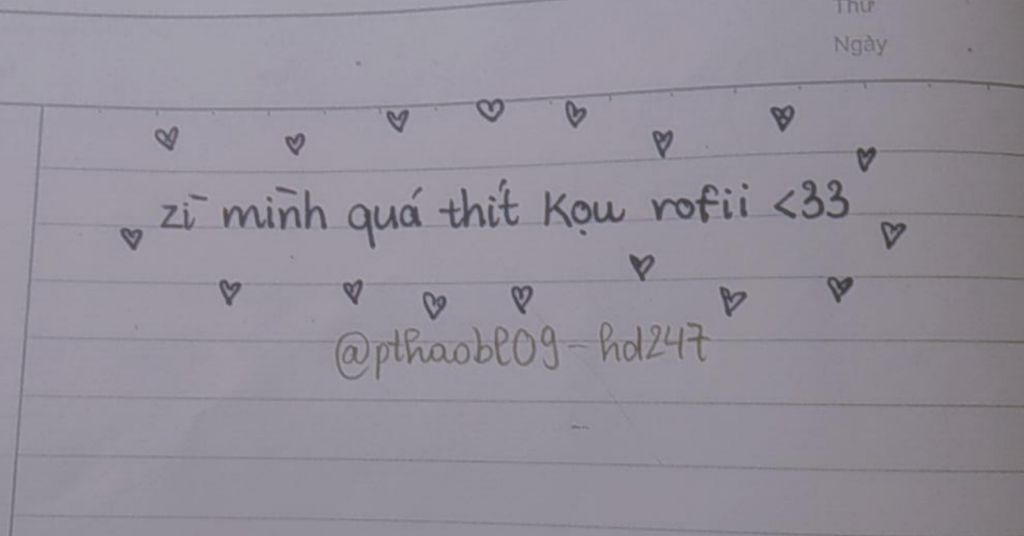 Thứ
Ngày
zì mình quá thít kọu rofii <33
@pthaobl09-hd247